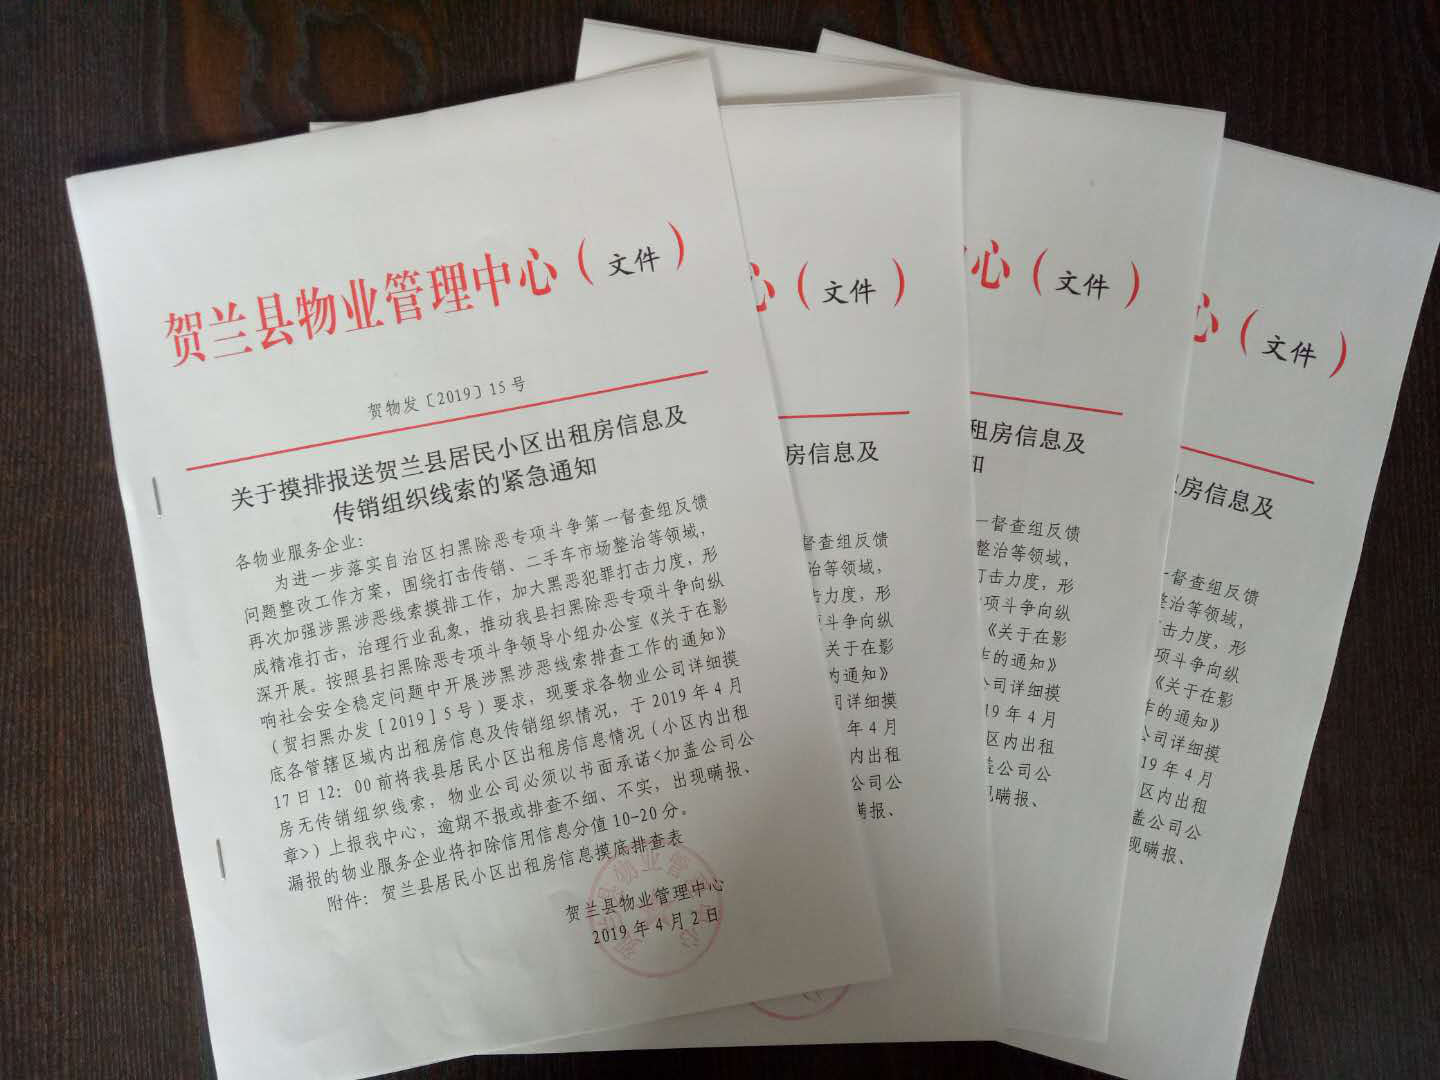 贺兰县物业管理中心（文件）
贺物发〔2019〕15号
关于摸排报送贺兰县居民小区出租房信息及
传销组织线索的紧急通知
各物业服务企业：
为进一步落实自治区扫黑除恶专项斗争第一督查组反馈
问题整改工作方案，围绕打击传销、二手车市场整治等领域，
再次加强涉黑涉恶线索摸排工作，加大黑恶犯罪打击力度，形
成精准打击，治理行业乱象，推动我县扫黑除恶专项斗争向纵
深开展。按照县扫黑除恶专项斗争领导小组办公室《关于在影
响社会安全稳定问题中开展涉黑涉恶线索排查工作的通知》
（贺扫黑办发[2019]5号）要求，现要求各物业公司详细摸
底各管辖区域内出租房信息及传销组织情况，于2019年4月
17日12：00前将我县居民小区出租房信息情况（小区内出租
房无传销组织线索，物业公司必须以书面承诺<加盖公司公
章>）上报我中心，逾期不报或排查不细、不实，出现瞒报、
漏报的物业服务企业将扣除信用信息分值10-20分。
附件：贺兰县居民小区出租房信息摸底排查表
贺兰县物业管理中心
2019年4月2日
心（文件）
房信息及
督查组反馈
治等领域，
击力度，形
斗争向纵
关于在影
的通知》
司详细摸
年4月
内出租
公司公
瞒报、
心（文件）
租房信息及
知
一督查组反馈
整治等领域，
打击力度，形
项斗争向纵
《关于在影
作的通知》
公司详细摸
19年4月
区内出租
盖公司公
现瞒报、
心（文件）
房信息及
一督查组反馈
整治等领域，
击力度，形
项斗争向纵
《关于在影
作的通知》
公司详细摸
19年4月
区内出租
盖公司公
现瞒报、